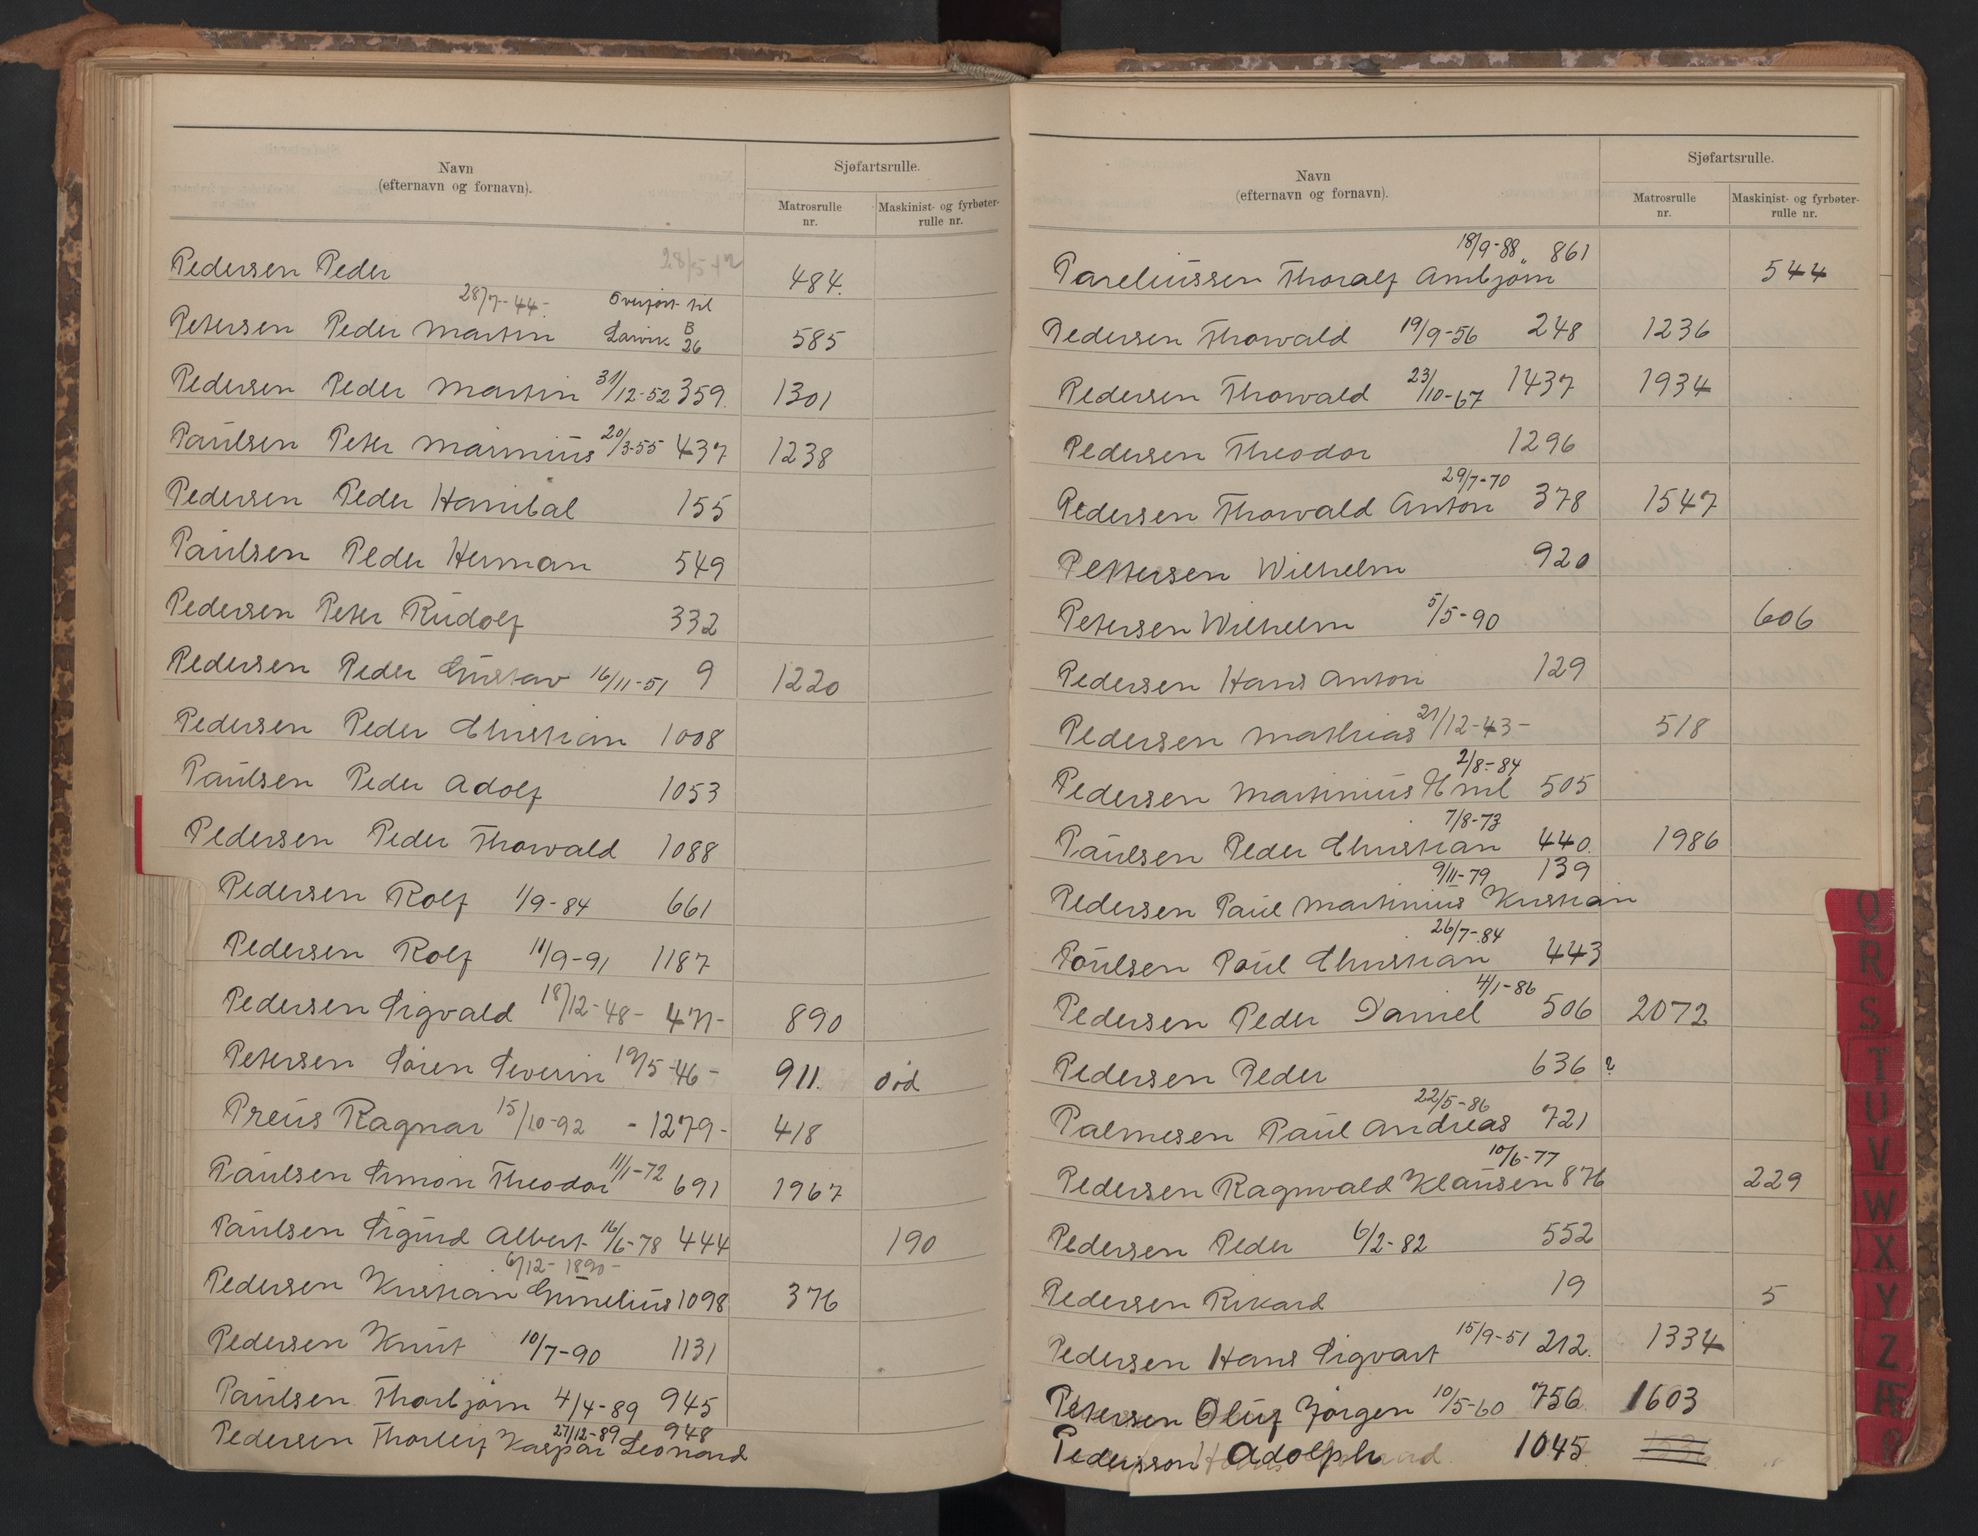 Navn
(efternavn og fornavn).
Sjøfartsrulle.
Matrosrulle
nr.
Maskinist- og fyrbøter-
rulle nr.
Pedersen Peder 28/5-42 484.
28/7-44- Overført til
Petersen Peder Martin Larvik B 26 585
Pedersen Peder Martin 31/12-52 359. 1301
Paulsen Peter Marinius 20/3-55 437 1238
Pedersen Peder Hanibal 155
Paulsen Peder Herman 549
Pedersen Peter Rudolf 332
Pedersen Peder Gustav 16/11-51 9 1220
Pedersen Peder Christian 1008
Paulsen Peder Adolf 1053
Pedersen Peder Thorvald 1088
Pedersen Rolf 1/9-84 661
Pedersen Rolf 11/9-91 1187
Pedersen Sigvald 18/12-48- 471- 890
Petersen Sören Severin 19/5-46- 911. död
Preus Ragnar 15/10-92 -1279- 418
Paulsen Simon Theodor 11/1-72 691 1967
Paulsen Sigurd Albert 16/6-78 444 190
6/12-1890-
Pedersen Kristian Cornelius 1098 376
Pedersen Knut 10/7-90 1131
Paulsen Thorbjörn 4/4-89 945
27/12-89 948
Pedersen Thorleif Kaspar Leonard
Navn
(efternavn og fornavn).
Sjøfartsrulle.
Matrosrulle
nr.
Maskinist- og fyrbøter-
rulle nr.
18/9-88 861
Pareliussen Thoralf Arnbjörn 544
Pedersen Thorvald 19/9-56 248 1236
Pedersen Thorvald 23/10-67 1437 1934
Pedersen Theodor 1296
29/7-70
Pedersen Thorvald Anton 378 1547
Pettersen Wilhelm 920
Petersen Wilhelm 5/5-90 606
Pedersen Hans Anton 129
Pedersen Mathias 21/12-43- 518
2/8-84
Pedersen Martinius Emil 505
7/8-73
Paulsen Peder Christian 440. 1986
9/11-79 139
Pedersen Paul Martinius Kristian
26/7-84
Poulsen Poul Christian 443
4/1-86
Pedersen Peder Daniel 506 2072
Pedersen Peder 636 ?
22/5-86
Palmesen Paul Andreas 721
10/6-77
Pedersen Ragnvald Klausen 876 229
Pedersen Peder 6/2-82 552
Pedersen Rikard 19 5
Pedersen Hans Sigvart 15/9-51 212. 1334
Petersen Oluf Jörgen 10/5-60 756. 1603
Pedersson Adolph 1045.
Q
R
S
T
U
V
W
X
Y
Z
Æ
Ø